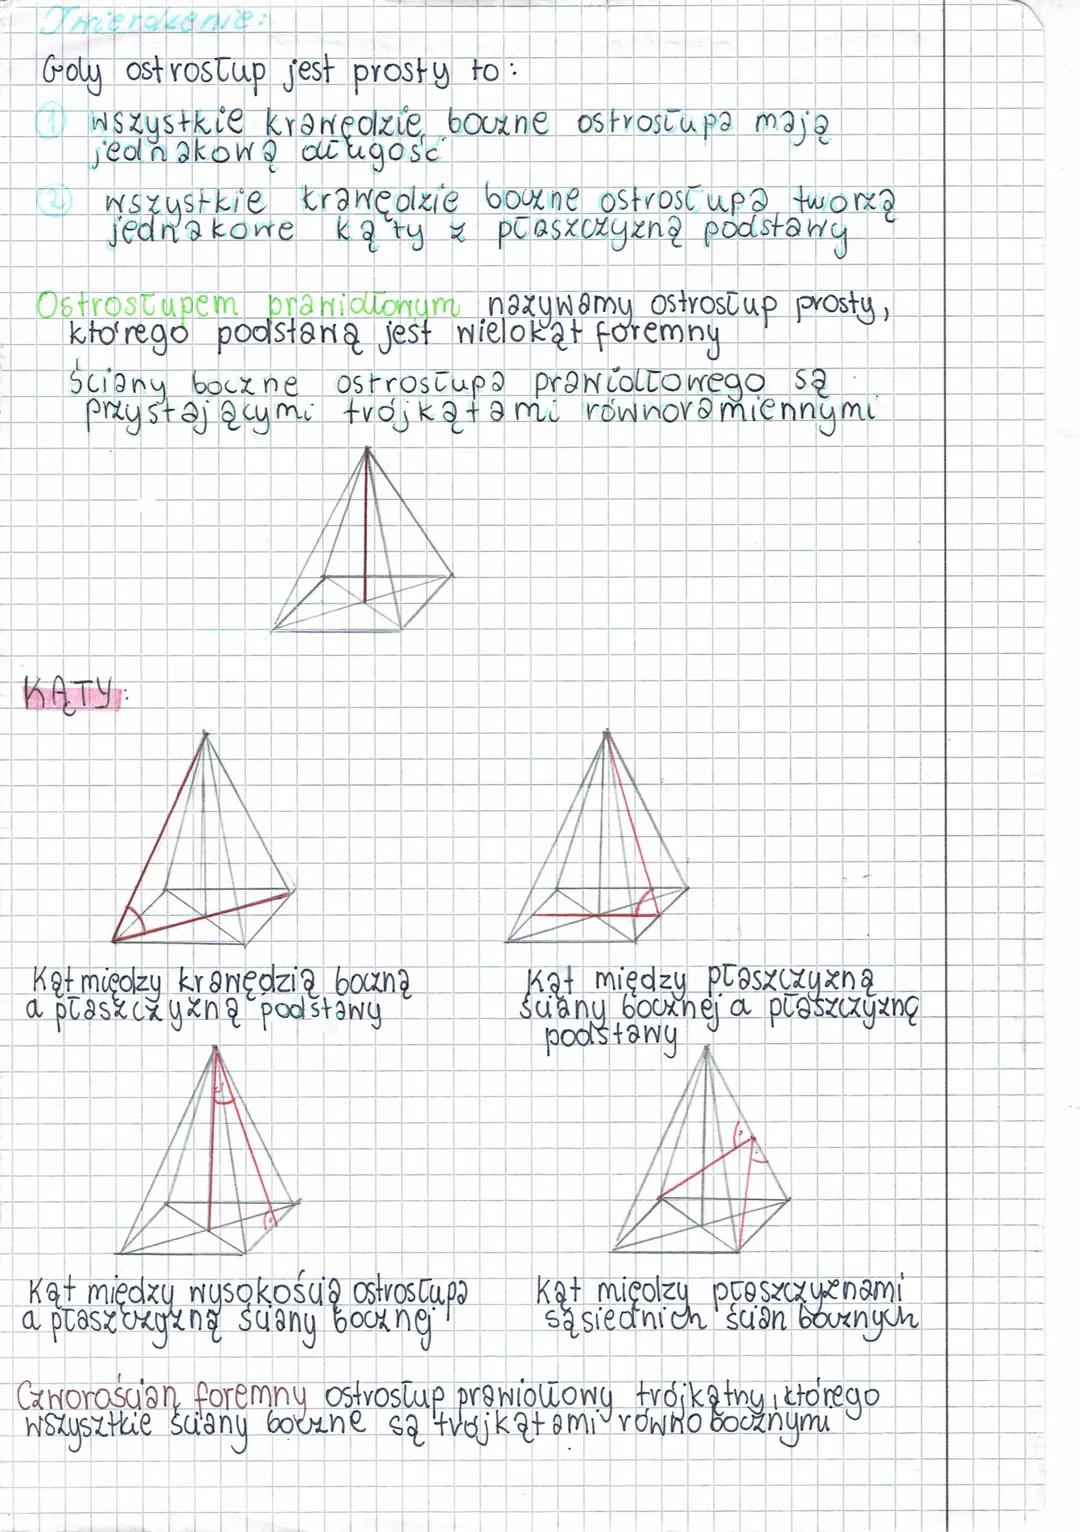 Twierdzenie:
Gdy ostrosłup jest prosty to:
① wszystkie krawędzie boczne ostrosłupa mają
jednakową długość
② wszystkie krawędzie boczne ostrosłupa tworzą
jednakowe kąty z płaszczyzną podstawy
Ostrosłupem prawidłowym nazywamy ostrosłup prosty,
którego podstawą jest wielokąt foremny
ściany boczne ostrosłupa prawidłowego są
przystającymi trójkątami równoramiennymi
KĄTY:
Kąt między krawędzią boczną
a płaszczyzną podstawy
Kąt między płaszczyzną
ściany bocznej a płaszczyzną
podstawy
Kąt między wysokością ostrosłupa
a płaszczyzną ściany bocznej
Kąt między płaszczyznami
sąsiednich ścian bocznych
Czworościan foremny ostrosłup prawidłowy trójkątny, którego
wszysztkie ściany boczne są trójkątami równobocznymi